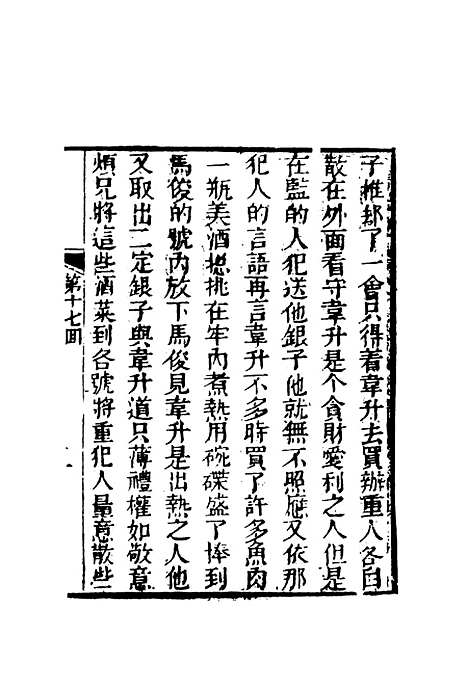 子推却了一會只得着韋升去買辦重人各自
散在外面看守韋升是个貪財愛利之人但是
在監的人犯送他銀子他就無不照應又依那
犯人的言語再言韋升不多時買了許多魚肉
一瓶美酒揔挑在牢內煮熟用碗碟盛了捧到
馬俊的號內放下馬俊見韋升是出熱之人他
又取出二定銀子與韋升道只薄禮權如敬意
煩兄將這些酒菜到各號將重犯人量意散些
第十七回